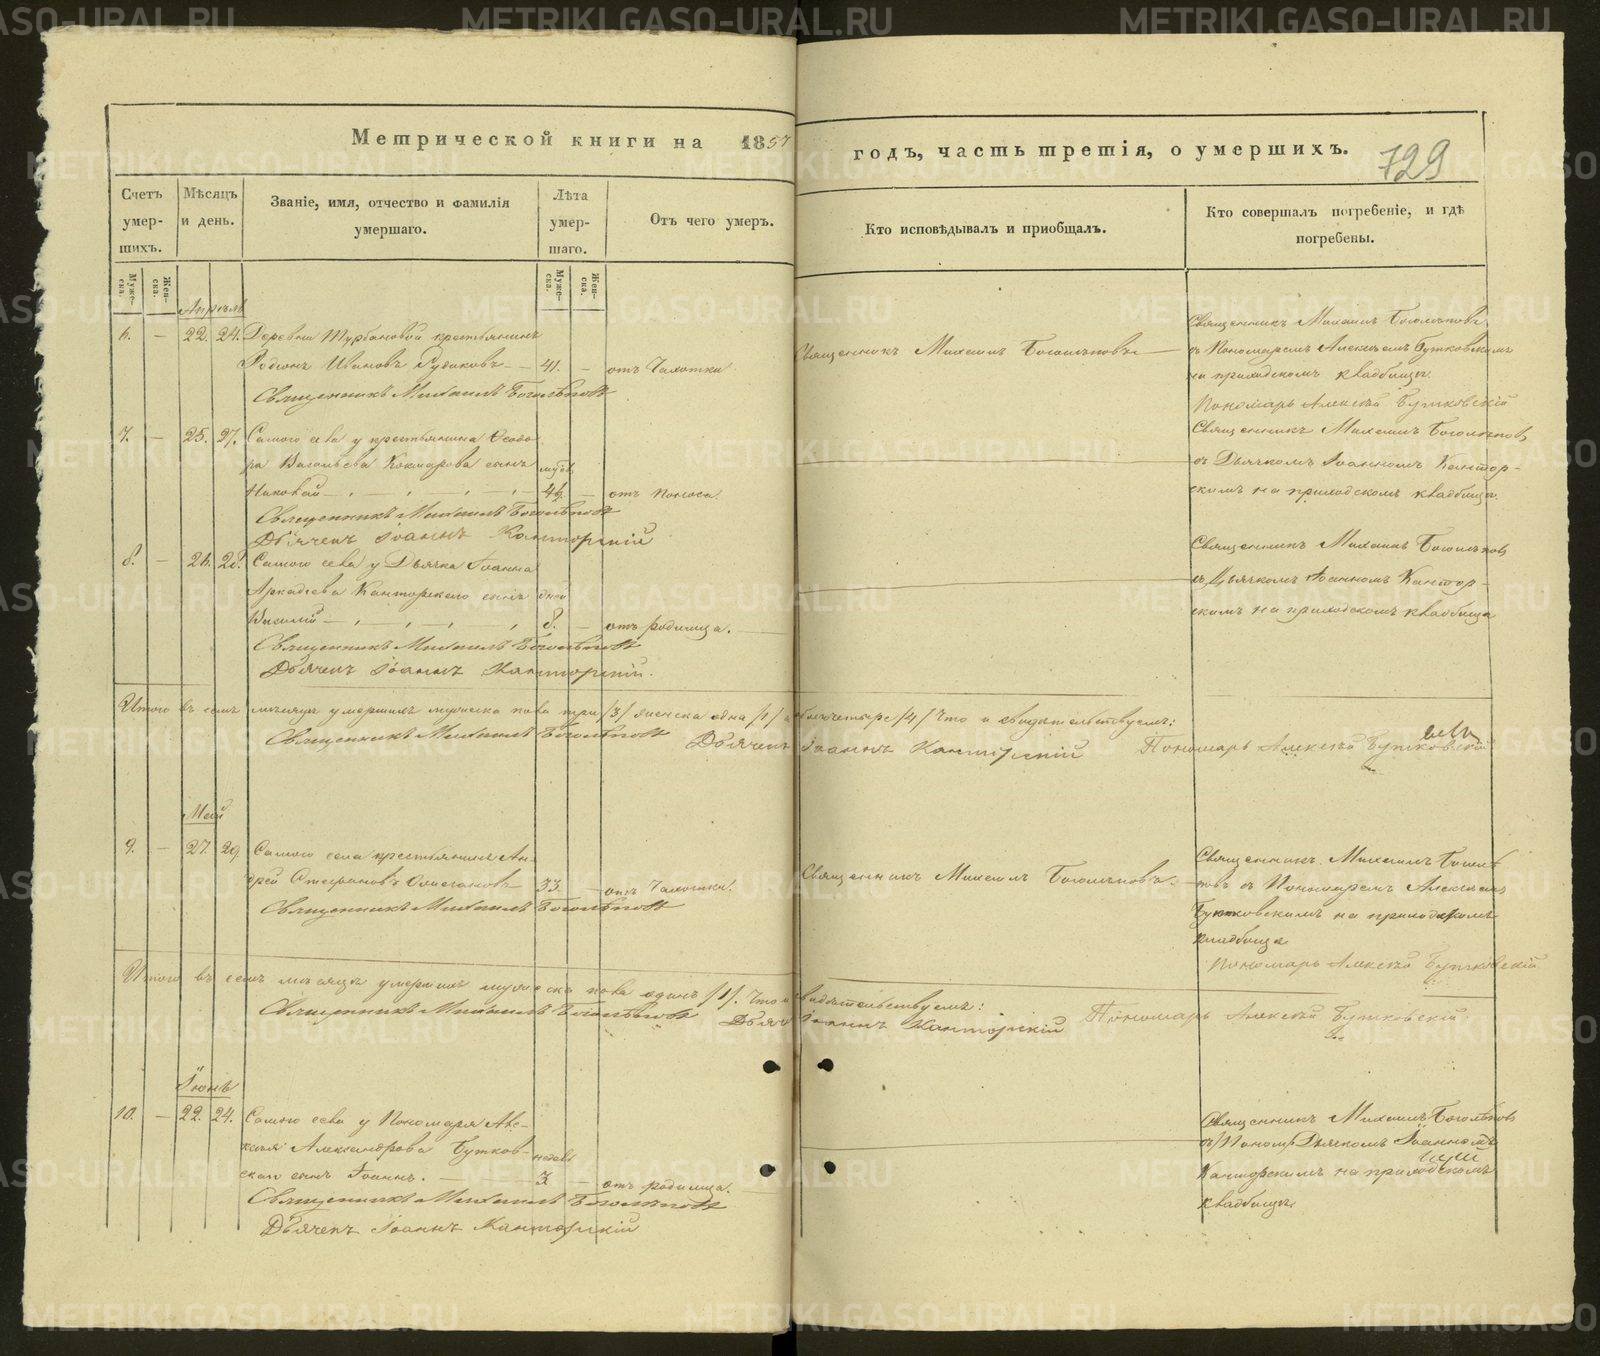 Метрической книги на 1857
годъ, часть третія, о умершихъ.
729
Счетъ умер-шихъ.
Мѣсяцъ и день.
Званіе, имя, отчество и фамилія умершаго.
Лѣта умер-шаго.
Отъ чего умеръ.
Кто исповѣдывалъ и приобщалъ.
Кто совершалъ погребеніе, и гдѣ погребены.
Муже-ска.
Жен-ска.
Муже-ска.
Жен-ска.
Апрѣль
6. — 22. 24. Деревни Турбановой крестьянинъ
Родіонъ Ивановъ — 41. — отъ Чахотки
Священникъ Михаилъ Боголѣповъ
Священникъ Михаилъ Боголѣповъ
Священникъ Михаилъ Боголѣповъ
съ Пономаремъ Алексѣемъ Бутковскимъ
на приходскомъ кладбищѣ.
Пономарь Алексѣй Бутковскій
7. — 25. 27. Самого села у крестьянина Ѳеодо-
ра Васильева сынъ
отъ поноса.
Священникъ Михаилъ Боголѣповъ
Дьячекъ Іоаннъ Канторскій
Священникъ Михаилъ Боголѣповъ
съ Дьячкомъ Іоанномъ Кантор-
скимъ на приходскомъ кладбищѣ.
8. — 26. 28. Самого села у Дьячка Іоанна
Аркадіева Канторскаго сынъ дней
Василій — 8. — отъ родимца.
Священникъ Михаилъ Боголѣповъ
Дьячекъ Іоаннъ Канторскій.
Священникъ Михаилъ Боголѣповъ
съ Дьячкомъ Іоанномъ Кантор-
скимъ на приходскомъ кладбищѣ
Итого въ семъ мѣсяцѣ умершихъ мужеска пола три /3/ женска одна /1/ а обоего четыре /4/ Что и свидѣтельствуемъ:
Священникъ Михаилъ Боголѣповъ Дьячекъ Іоаннъ Канторскій Пономарь Алексѣй Бутковскій
Май
9. — 27. 29. Самого села крестьянинъ Ан-
дрей Стефановъ — 33. — отъ Чахотки.
Священникъ Михаилъ Боголѣповъ
Священникъ Михаилъ Боголѣповъ.
Священникъ Михаилъ Боголѣ-
повъ съ Пономаремъ Алексѣемъ
Бутковскимъ на приходскомъ
кладбищѣ
Пономарь Алексѣй Бутковскій
Итого въ семъ мѣсяцѣ умершихъ мужеска пола одинъ /1/. Что и свидѣтельствуемъ:
Священникъ Михаилъ Боголѣповъ Дьячекъ Іоаннъ Канторскій Пономарь Алексѣй Бутковскій
Іюнь
10. — 22. 24. Самого села у Пономаря Але-
ксѣя Александрова Бутков-
скаго сынъ Іоаннъ. — 3. — отъ родимца.
Священникъ Михаилъ Боголѣповъ
Дьячекъ Іоаннъ Канторскій
Священникъ Михаилъ Боголѣповъ
съ Дьячкомъ Іоанномъ
Канторскимъ на приходскомъ
кладбищѣ.
METRIKI.GASO-URAL.RU